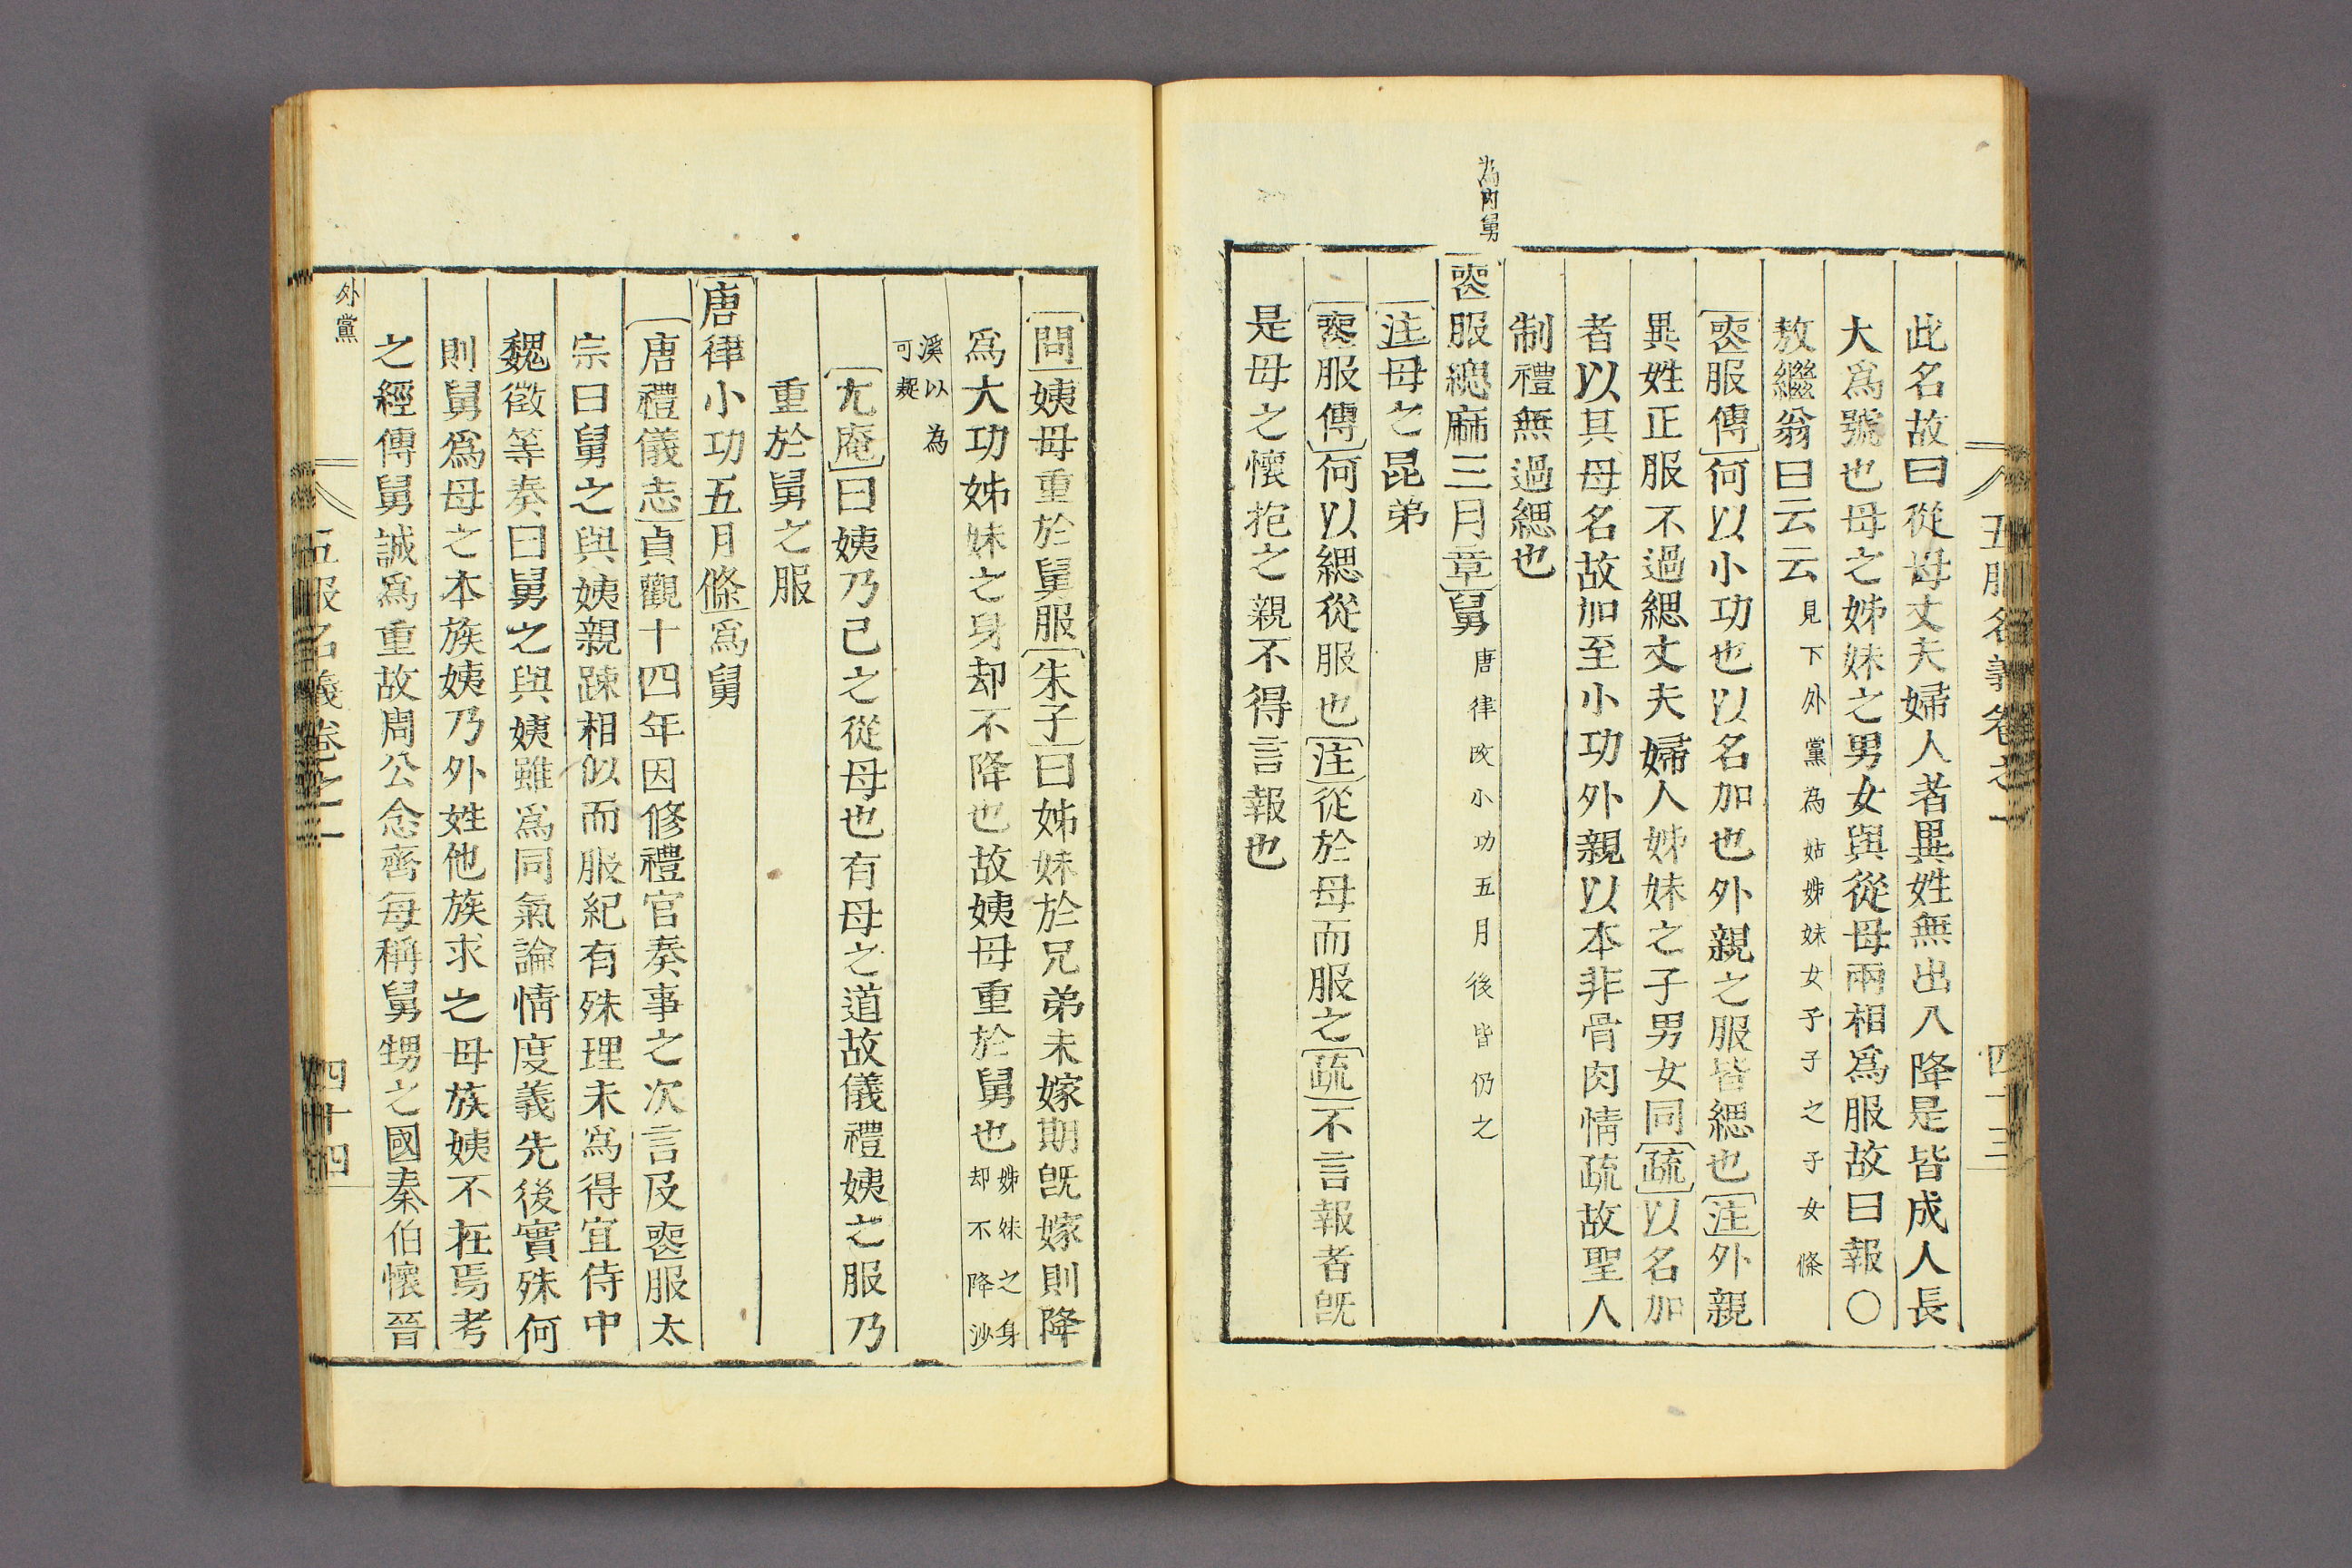 五服名義卷之一
四十三
此名故曰從母丈夫婦人者異姓無出入降是皆成人長
大爲號也母之姊妹之男女與從母兩相爲服故曰報〇
敖繼翁曰云云見下外黨為姑姊妹女子子之子女條
喪服傳何以小功也以名加也外親之服皆緦也注外親
異姓正服不過緦丈夫婦人姊妹之子男女同疏以名加
者以其母名故加至小功外親以本非骨肉情疏故聖人
制禮無過緦也
為內舅
喪服緦麻三月章舅唐律改小功五月後皆仍之
注母之昆弟
喪服傳何以緦從服也注從於母而服之疏不言報者旣
是母之懷抱之親不得言報也
問姨母重於舅服朱子曰姊妹於兄弟未嫁期旣嫁則降
爲大功姊妹之身却不降也故姨母重於舅也姊妹之身
却不降沙
溪以為
可疑
尤庵曰姨乃己之從母也有母之道故儀禮姨之服乃
重於舅之服
唐律小功五月條爲舅
唐禮儀志貞觀十四年因修禮官奏事之次言及喪服太
宗曰舅之與姨親踈相似而服紀有殊理未爲得宜侍中
魏徵等奏曰舅之與姨雖爲同氣論情度義先後實殊何
則舅爲母之本族姨乃外姓他族求之母族姨不在焉考
之經傳舅誠爲重故周公念齊每稱舅甥之國秦伯懷晉
外黨
五服名義卷之一
四十四